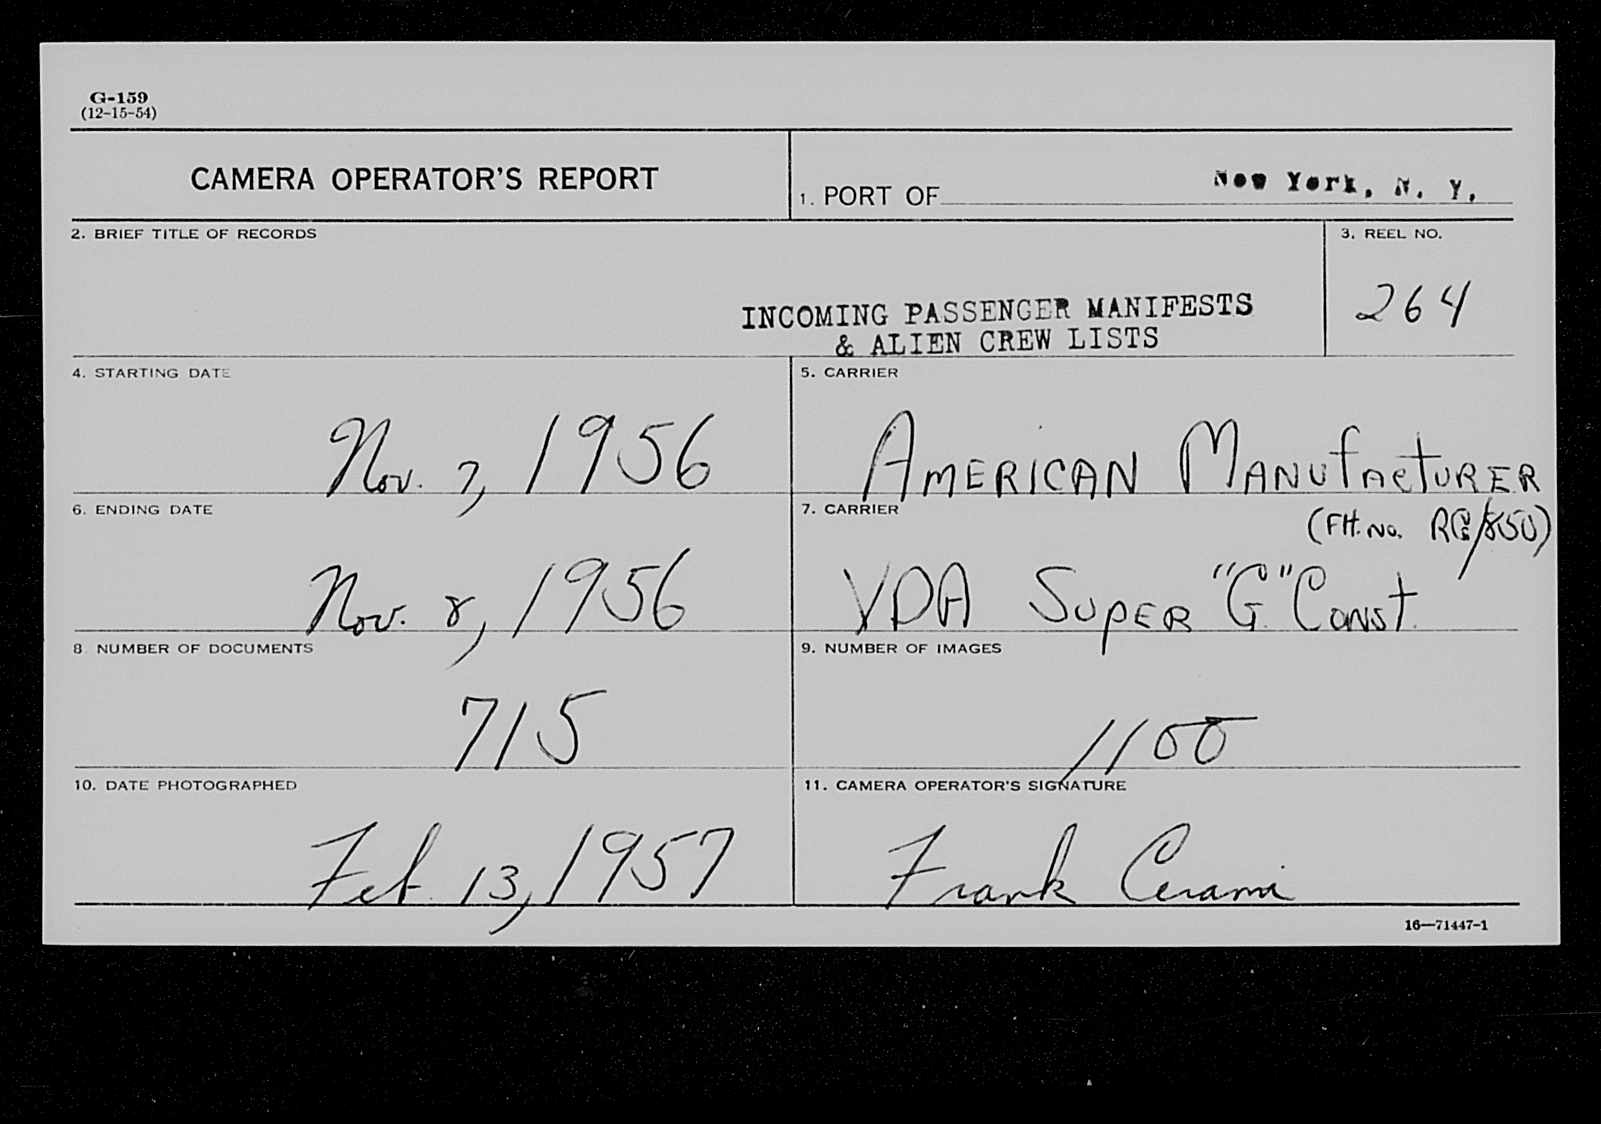 G-159
(12-15-54)
CAMERA OPERATOR'S REPORT
1. PORT OF New York, N. Y.
2. BRIEF TITLE OF RECORDS
3. REEL NO.
INCOMING PASSENGER MANIFESTS
& ALIEN CREW LISTS
264
4. STARTING DATE
5. CARRIER
Nov. 7, 1956
AMERICAN MANUFACTURER
6. ENDING DATE
7. CARRIER
(FH. No. RG/850)
Nov. 8, 1956
VDA SUPER "G" CONST.
8 NUMBER OF DOCUMENTS
9. NUMBER OF IMAGES
715
1100
10. DATE PHOTOGRAPHED
11. CAMERA OPERATOR'S SIGNATURE
Feb. 13, 1957
Frank Cerami
16—71447-1